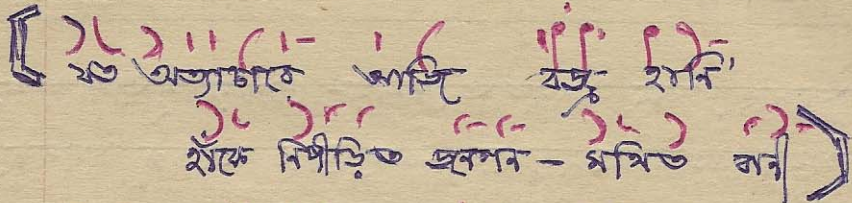 [ যত অত্যাচারে আজি বজ্র হানি'
হাঁকে নিপীড়িত জনগন - মথিত বাণী )